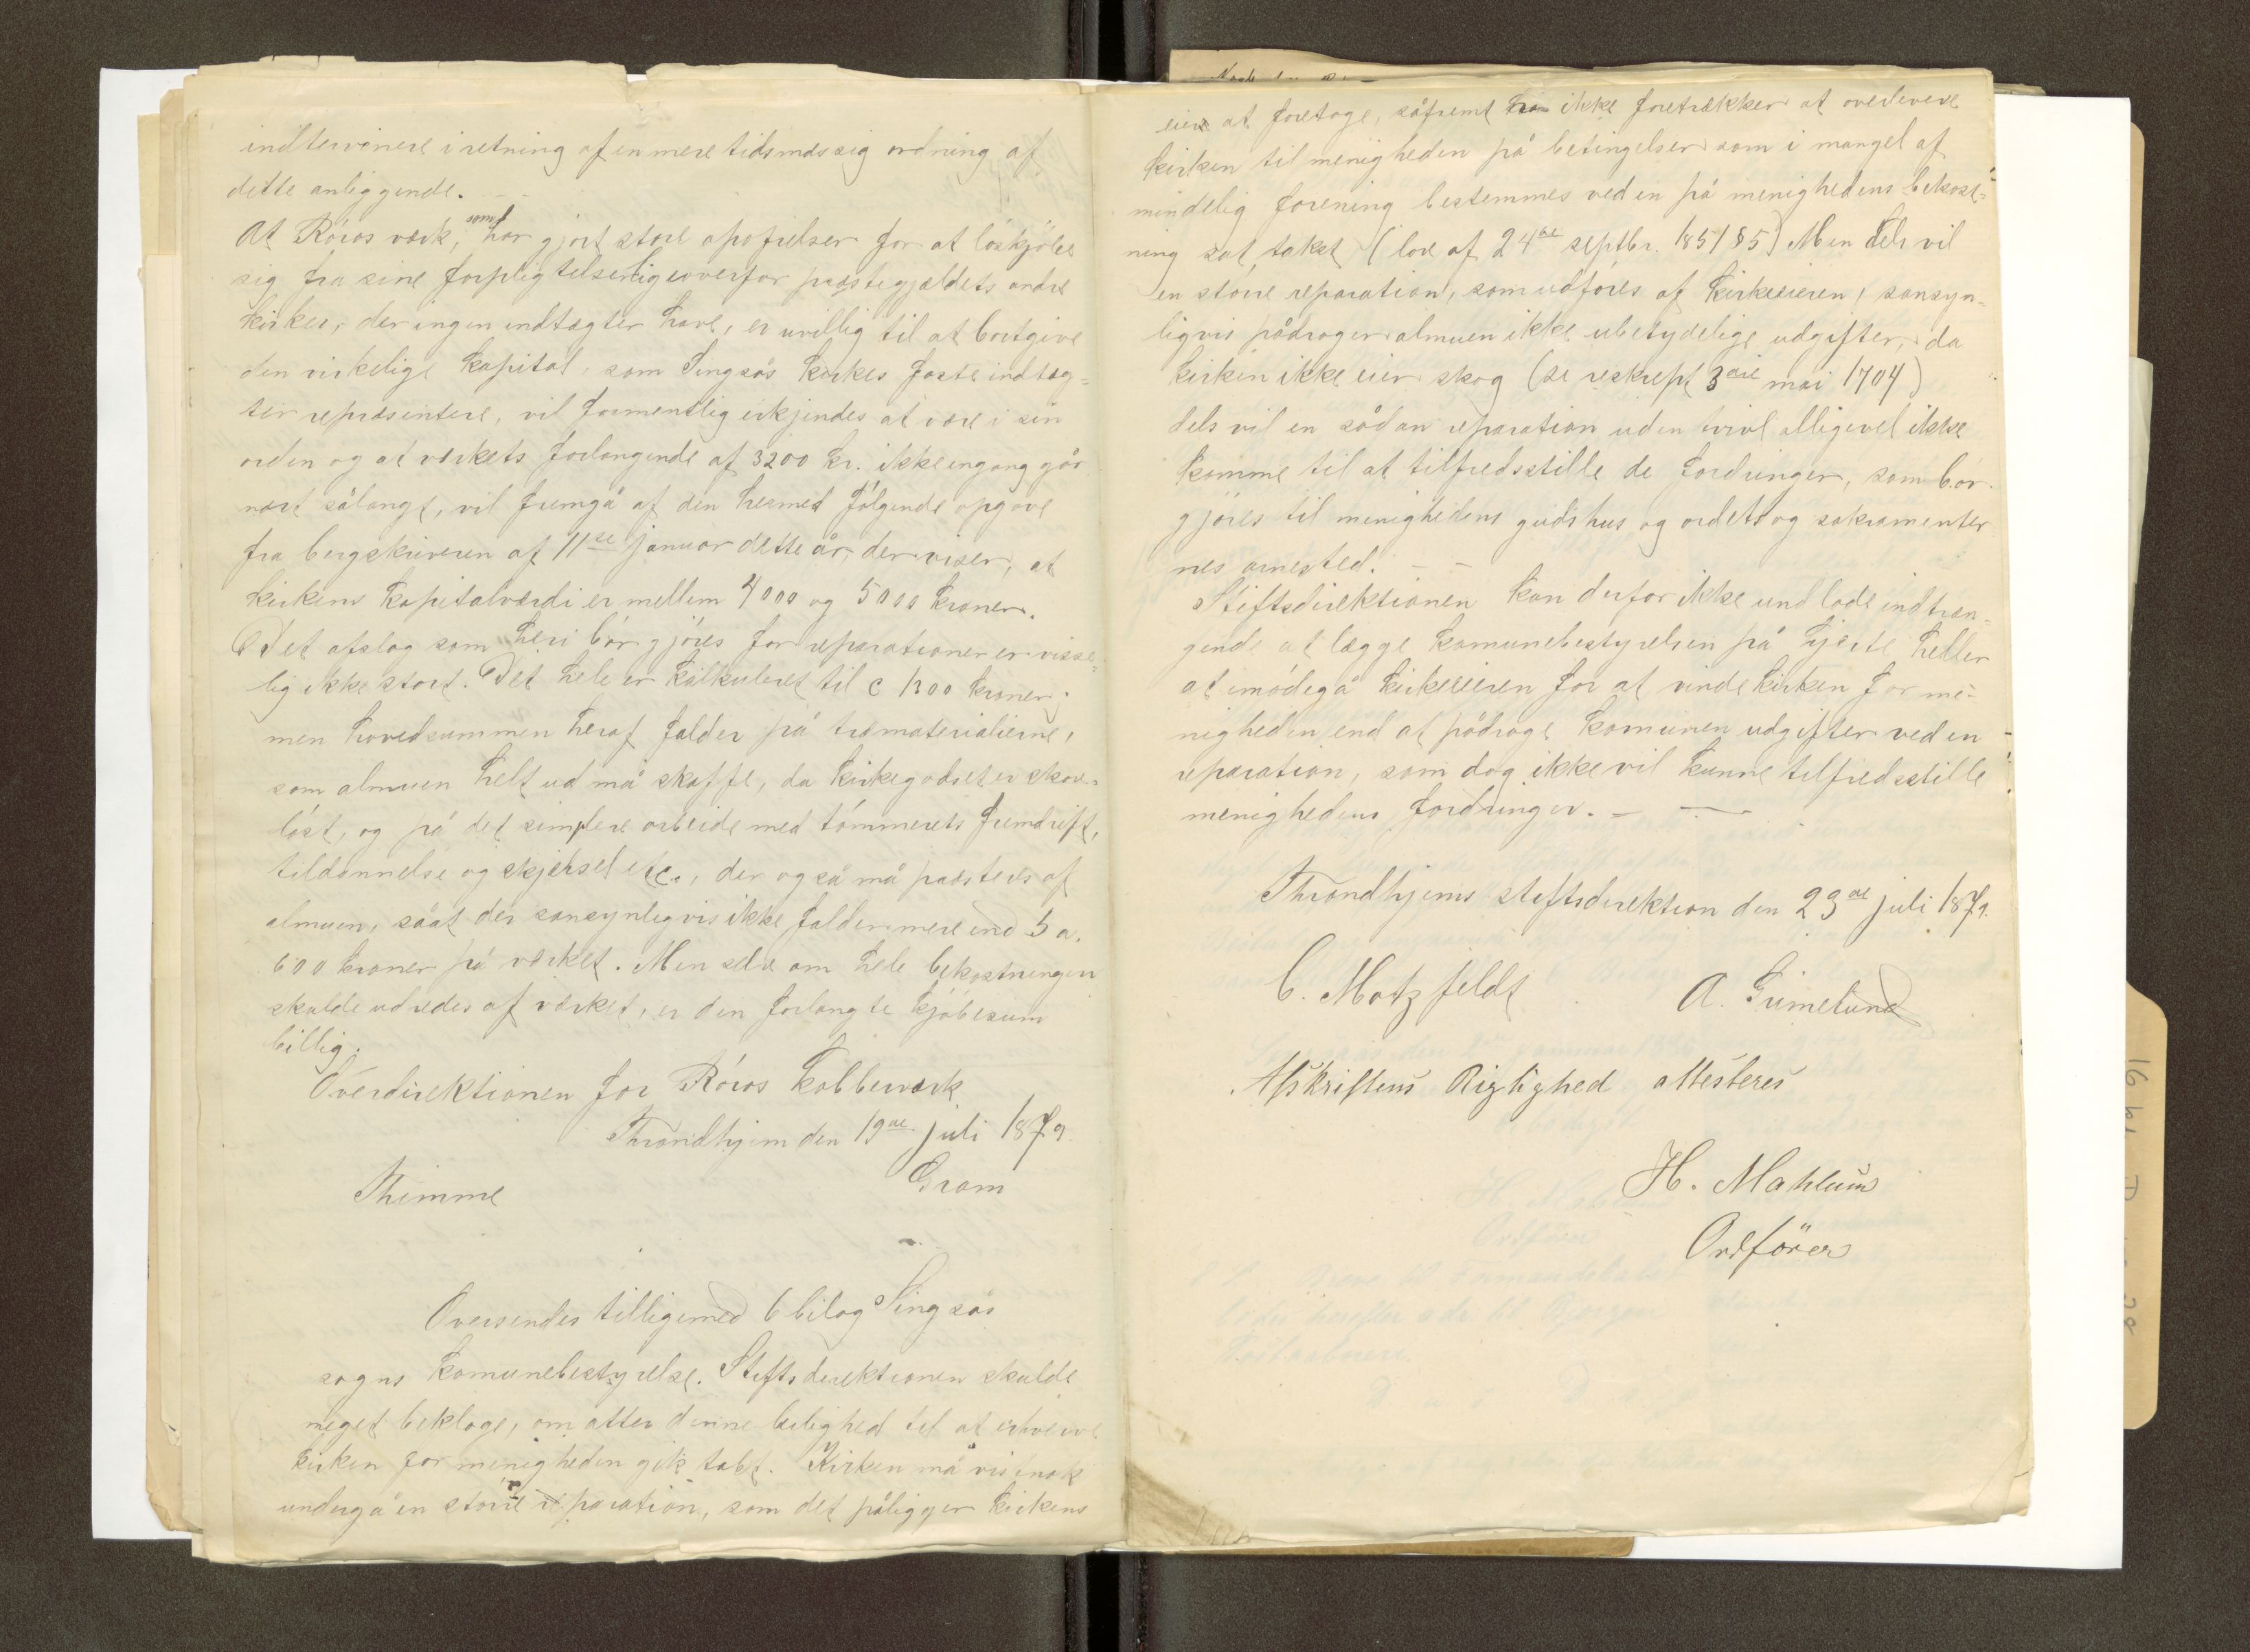 indtervenere i retning af en mere tidsmæssig ordning af
dette anliggende. -
At Röros værk, som har gjort store opofrelser for at löskjöbe
sig fra sine forpligtelser ligeoverfor præstegjældets andre
kirker, der ingen indtægter have, er uvillig til at bortgive
den virkelige kapital, som Singsås kirkes faste indtæg=
ter repræsentere, vil formentlig erkjendes at være i sin
orden og at værkets forlangende af 3200 kr. ikke engang går
nært sålangt, vil fremgå af den hermed fölgende opgave
fra bergskriveren af 11te januar dette år, der viser, at
kirkens kapitalværdi er mellem 4000 og 5000 kroner.
Det afslag som heri bör gjöres for reparationer er visse=
lig ikke stort. Det hele er kalkuleret til c 1300 kroner;
men hovedsummen heraf falder på træmaterialierne,
som almuen helt ud må skaffe, da kirkegodset er skov=
löst, og på det simplere arbeide med tömmerets fremdrift,
tildannelse og skjørsel etc., der også må præsteres af
almuen, såat der sansynligvis ikke falder mere end 5 a.
600 kroner på værket. Men selv om hele bekostningen
skulde udredes af værket, er den forlangte kjöbesum
billig.
Overdirektionen for Röros Kobberværk
Throndhjem den 19de juli 1879.
Thimme Gram
Oversendes tilligemed 6 bilag Singsås
sogns komunebestyrelse. Stiftsdirektionen skulde
meget beklage, om atter denne leilighed til at erhverve
kirken for menigheden gik tabt. Kirken må vistnok
undergå en större reparation, som det påligger kirkens
eier at foretage, såfremt han ikke foretrækker at overlevere
kirken til menigheden på betingelser som i mangel af
mindelig forening bestemmes ved en på menighedens bekost=
ning sat takst (lov af 24de septbr. 1851 § 5) Men dels vil
en större reparation, som udföres af kirkeeieren, sansyn=
ligvis pådrager almuen ikke ubetydelige udgifter, da
kirken ikke eier skog (se reskript 3die mai 1704)
dels vil en sådan reparation uden tvivl alligevel ikke
komme til at tilfredsstille de fordringer, som bör
gjöres til menighedens gudshus og ordets og sakramenter
nes arnested. - -
Stiftsdirektionen kan derfor ikke undlade indtræn=
gende at lægge komunebestyrelsen på hjerte heller
at imödegå kirkeeieren for at vinde kirken for me=
nigheden end at pådrage komunen udgifter ved en
reparation, som dog ikke vil kunne tilfredsstille
menighedens fordringer. - -
Throndhjems stiftsdirektion den 23de juli 1879.
C. Motzfeldt A. Grimelund
Afskriftens Rigtighed attesteres
H. Mahlum
Ordförer